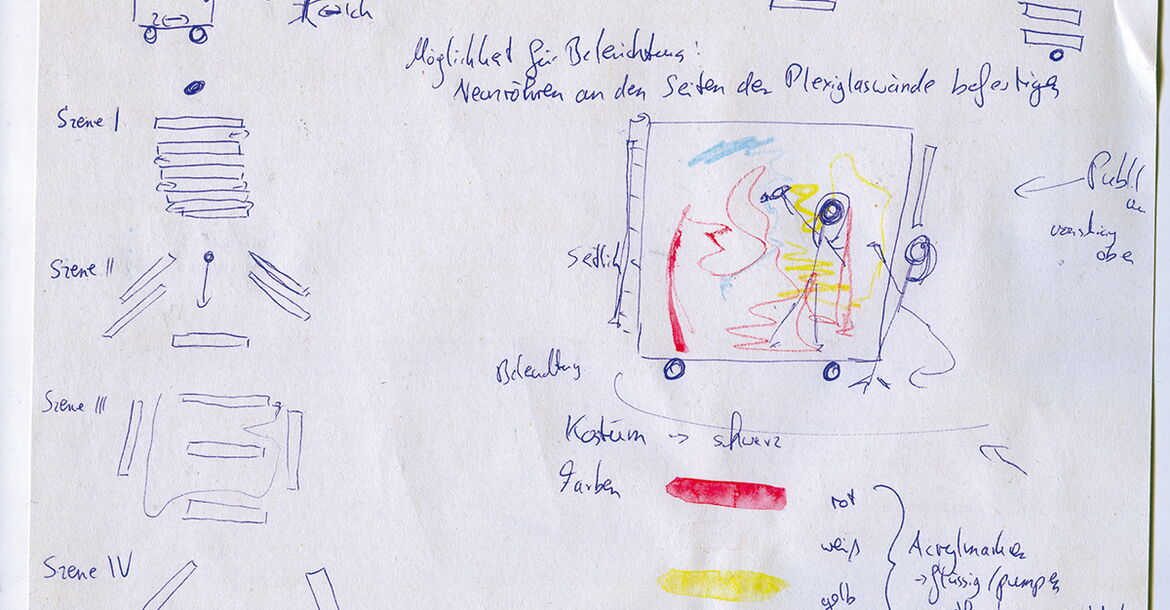 Möglichkeit für Beleuchtung!
Neonröhren an den Seiten der Plexiglaswände befestigen
Szene I
Szene II
seitlich
Szene III
Beleuchtung
Kostüm -> schwarz
Farben
rot
weiß
gelb
Szene IV
Acrylmarker
-> flüssig/pumpen